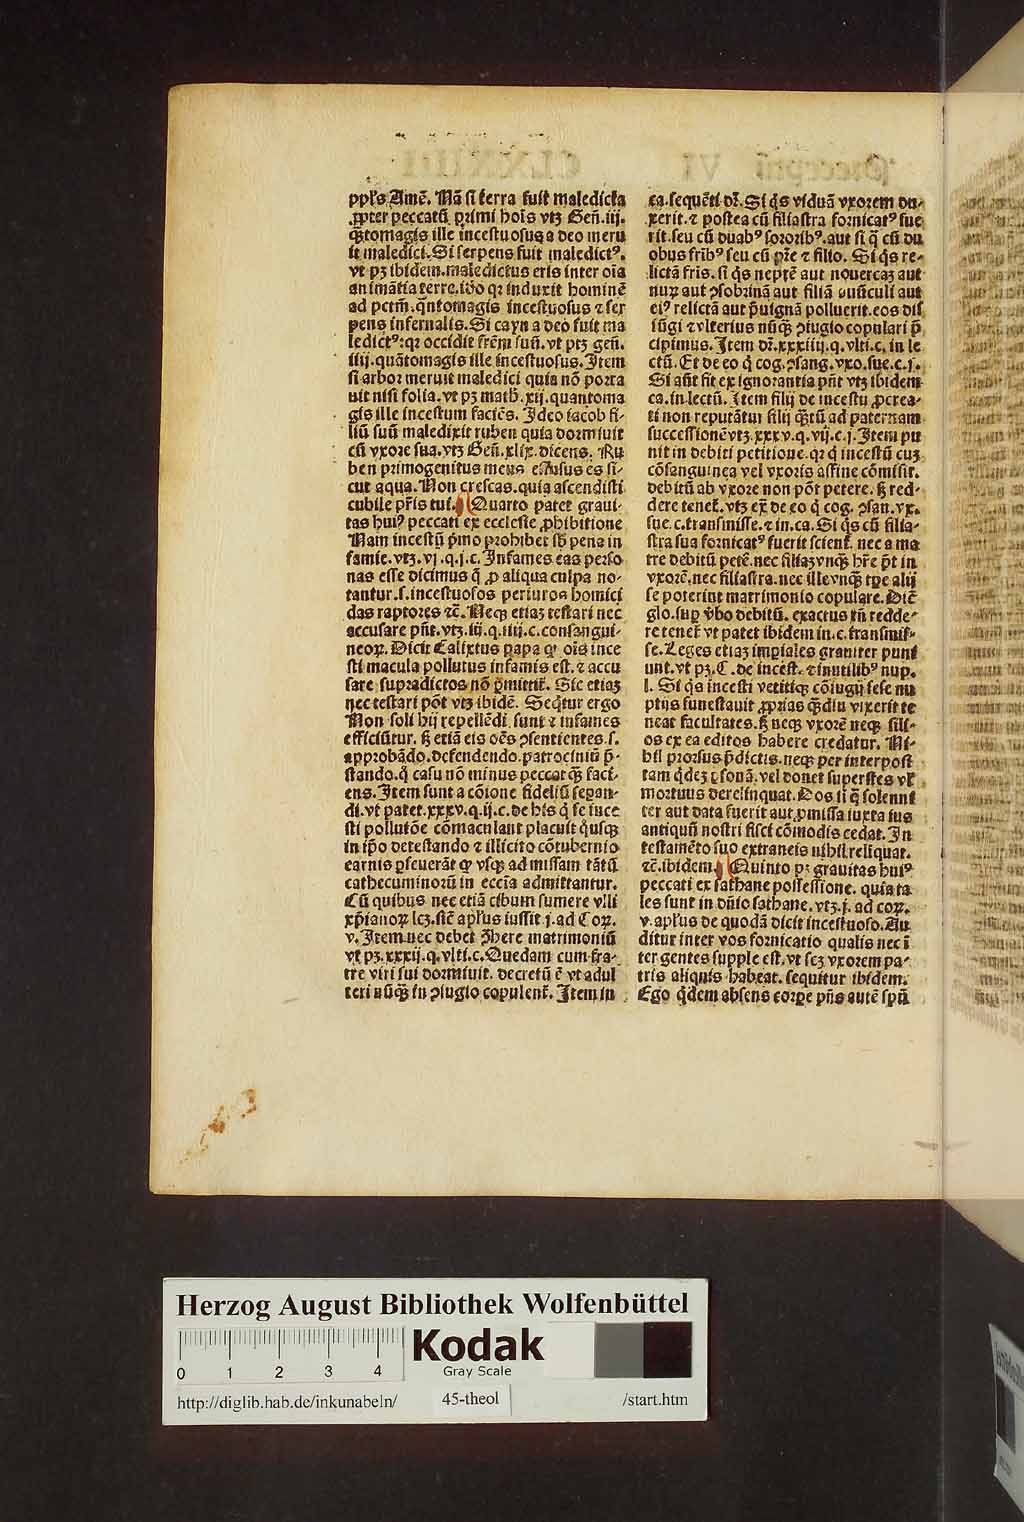 ppl̃s Amẽ. Nã si terra fuit maledicta
ꝓpter peccatũ primi hoĩs vtꝫ Geñ.iij.
q̃tomagis ille incestuosus a deo meru
it maledici. Si serpens fuit maledictꝰ.
vt pꝫ ibidem. maledictus eris inter oĩa
animãtia terre. iõo qꝛ induxit hominẽ
ad pctm̃. q̃ntomagis incestuosus ⁊ ser
pens infernalis. Si cayn a deo fuit ma
ledictꝰ: qꝛ occidit frẽm suũ. vt ptꝫ geñ.
iiij. quãtomagis ille incestuosus. Item
si arbor meruit maledici quia nõ porta
uit nisi folia. vt pꝫ math̃.xij. quantoma
gis ille incestum faciẽs. Ideo iacob fi-
liũ suũ maledixit ruben quia dormiuit
cũ vxore sua. vtꝫ Geñ.xlix. dicens. Ru
ben primogenitus meus effusus es si-
cut aqua. Non crescas. quia ascendisti
cubile pr̃is tui. Quarto patet graui-
tas huiꝰ peccati ex ecclesie ꝓhibitione
Nam incestũ p̃mo prohibet sb̃ pena in
famie. vtꝫ. vj .q.j.c. Infames eas perso
nas esse dicimus q̃ ꝓ aliqua culpa no-
tantur .s. incestuosos periuros homici
das raptores ⁊c̃. Neqꝫ etiaꝫ testari nec
accusare pñt. vtꝫ.iij.q.iiij.c. consangui-
neoꝝ. Dicit Calixtus papa ꝙ oĩs ince
sti macula pollutus infamis est. ⁊ accu
sare supradictos nõ ꝑmittit̃. Sic etiaꝫ
nec testari põt vtꝫ ibidẽ. Seq̃tur ergo
Non soli hij repellẽdi sunt ⁊ infames
efficiũtur. sꝫ etiã eis oẽs ↄsentientes .s.
approbãdo. defendendo. patrociniũ p̃-
stando. q̃ casu nõ minus peccat q̃ꝫ faci-
ens. Item sunt a cõione fideliũ sepan-
di. vt patet.xxxv.q.ij.c. de his q̃ se ince
sti pollutõe cõmaculant placuit q̊usqꝫ
in ip̃o detestando ⁊ illicito cõtubernio
carnis ꝑseuerãt ꝙ vsqꝫ ad missam tãtũ
cathecuminorũ in ecc̃ia admittantur.
Cũ quibus nec etiã cibum sumere vlli
xp̃ianoꝝ lcꝫ. sic̃ apl̃us iussit j. ad Coꝝ.
v. Item nec debet ↄ̃here matrimoniũ
vt pꝫ.xxxij.q.vlti.c. Quedam cum fra-
tre viri sui dormiuit. decretũ ẽ vt adul
teri nũq̃ꝫ in ↄiugio copulent̃. Item in
ca. sequẽti dr̃. Si q̃s viduã vxorem du-
xerit. ⁊ postea cũ filiastra fornicatꝰ fue
rit. seu cũ duabꝰ sororibꝰ. aut si q̃ cũ du
obus fr̃ibꝰ seu cũ pr̃e ⁊ filio. Si q̃s re-
lictã fr̃is. si q̃s neptẽ aut nouercaꝫ aut
nuꝝ aut ↄsobrinã aut filiã auũculi aut
eiꝰ relictã aut p̃uignã polluerit. eos dis
iũgi ⁊ vlterius nũq̃ꝫ ↄiugio copulari p̃
cipimus. Item dr̃.xxxiiij.q.vlti.c. in le
ctũ. Et de eo q̃ cog. ↄsang. vxo. sue .c.j.
Si aũt fit ex ignorantia pñt vtꝫ ibidem
ca. in lectũ. Item filij de incestu ꝓcrea-
ti non reputãtur filij q̃tũ ad paternam
successionẽ vtꝫ.xxxv.q.vij.c.j. Item pu
nit in debiti petitione. qꝛ q̃ incestũ cuꝫ
cõsanguinea vel vxoris affine cõmisit.
debitũ ab vxore non põt petere. sꝫ red-
dere tenet̃. vtꝫ ex̃ de eo q̃ cog. ↄsan. vx.
sue .c. transmisse. ⁊ in.ca. Si q̃s cũ filia-
stra sua fornicatꝰ fuerit scient̃. nec a ma
tre debitũ petẽ. nec filiaꝫ vnq̃ꝫ hr̃e p̃t in
vxorẽ. nec filiastra. nec ille vnq̃ꝫ tꝑe alij
se poterint matrimonio copulare. Dic̃
glo. suꝑ v̓bo debitũ. exactus tñ redde-
re tenet̃ vt patet ibidem in.c. transmis-
se. Leges etiaꝫ imꝑiales grauiter puni
unt. vt pꝫ. C. de incest. ⁊ inutilibꝰ nup.
l. Si q̃s incesti vetitiqꝫ cõiugij sese nu
ptijs funestauit ꝓprias q̃ꝫdiu vixerit te
neat facultates. sꝫ neqꝫ vxorẽ neqꝫ fili-
os ex ea editos habere credatur. Ni-
hil prorsus p̃dictis. neqꝫ per interposi
tam q̃deꝫ ꝑsonã. vel donet superstes vl̃
mortuus derelinquat. Dos si q̃ solenni
ter aut data fuerit aut ꝓmissa iuxta ius
antiquũ nostri fisci cõmodis cedat. In
testamẽto suo extraneis nihil reliquat.
⁊c̃. ibidem. Quinto pꝫ grauitas huiꝰ
peccati ex sathane possessione. quia ta
les sunt in dñio sathane. vtꝫ.j. ad coꝝ.
v. apl̃us de quodã dicit incestuoso. Au
ditur inter vos fornicatio qualis nec ĩ
ter gentes supple est. vt scꝫ vxorem pa-
tris aliquis habeat. sequitur ibidem.
Ego q̃dem absens corꝑe pñs autẽ spũ
Herzog August Bibliothek Wolfenbüttel
0 1 2 3 4
Kodak
Gray Scale
http://diglib.hab.de/inkunabeln/ 45-theol /start.htm